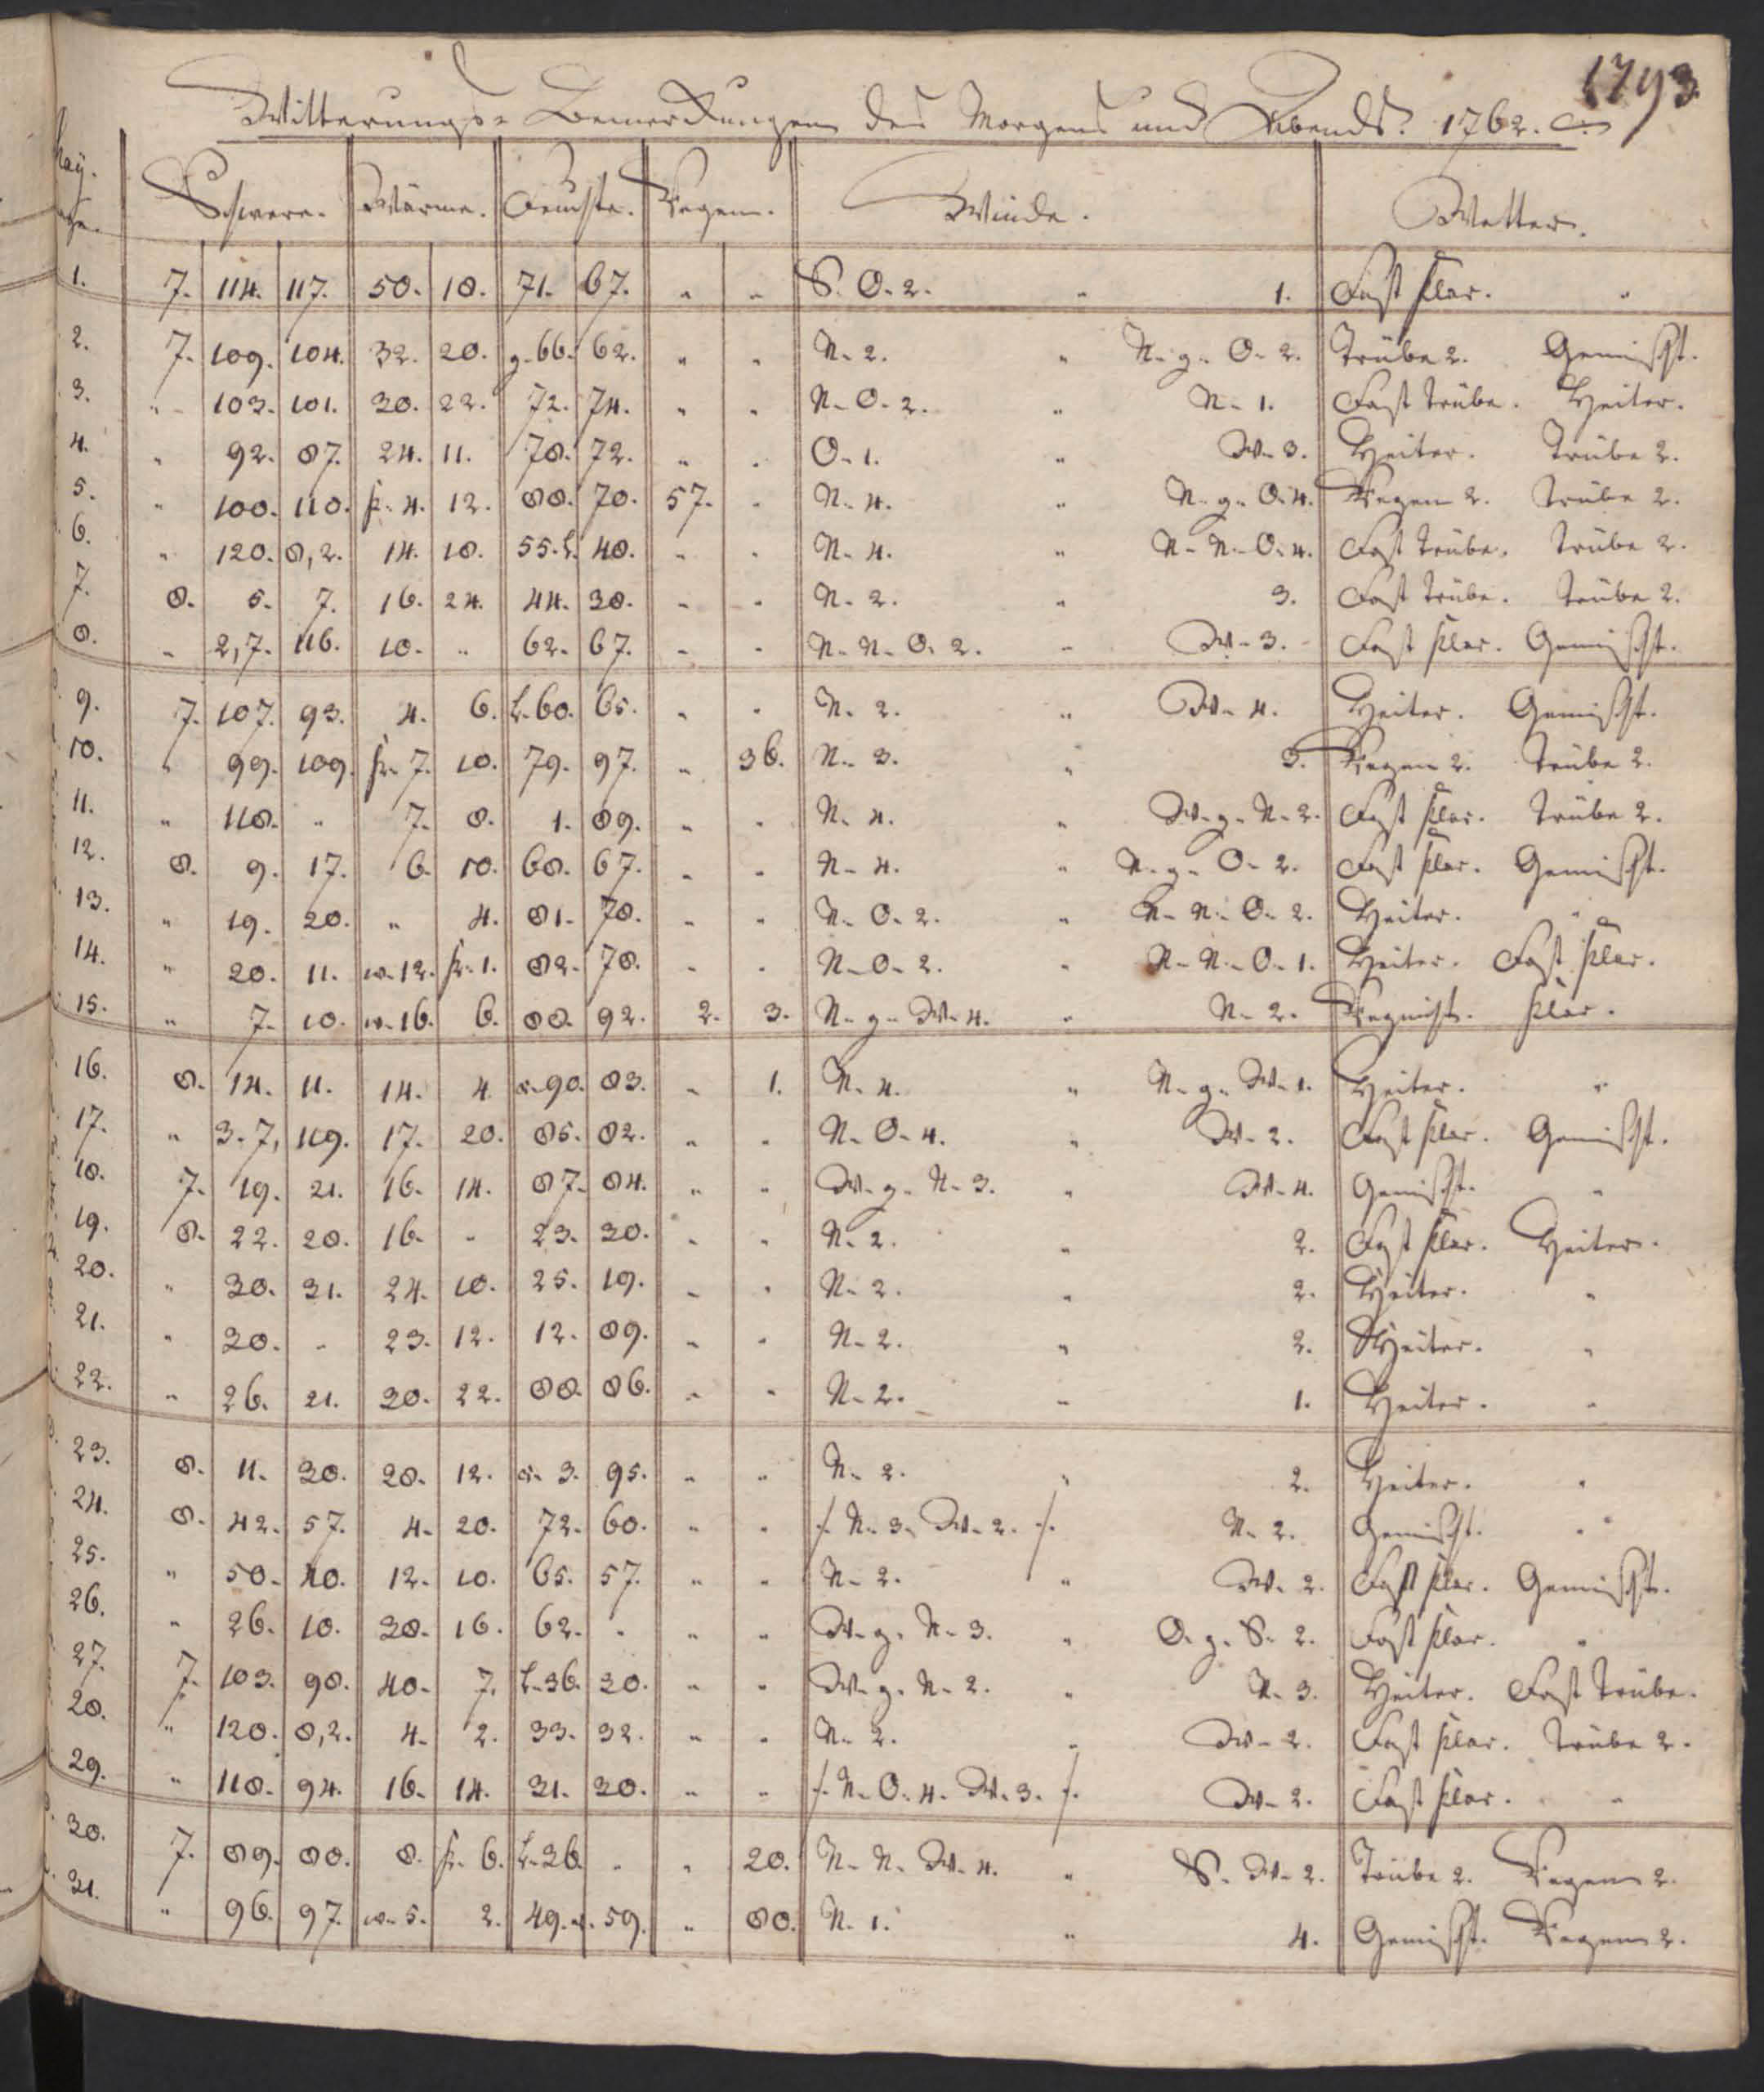 1793.
Witterungs-Bemerkungen des Morgens und Abends. 1762.
May.
Tage. Schwere. Wärme. Feuchte. Regen. Winde. Wetter.
1. 7. 114. 117. 50. 18. 71. 67. " " S. O. 2. " 1. Fast klar. "
2. 7. 109. 104. 32. 20. g. 66. 62. " " N. 2. " N. g. O. 2. Trübe 2. Gemischt.
3. " 103. 101. 30. 22. 72. 74. " " N. O. 2. " N. 1. Fast trübe. Heiter.
4. " 92. 87. 24. 11. 78. 72. " " O. 1. " W. 3. Heiter. Trübe 2.
5. " 100. 110. k. 4. 12. 88. 70. 57. " N. 4. " N. g. O. 4. Regen 2. Trübe 2.
6. " 120. 8,2. 14. 18. 55. l. 48. " " N. 4. " N. N. O. 4. Fast trübe. Trübe 2.
7. 8. 5. 7. 16. 24. 44. 38. " " N. 2. " 3. Fast trübe. Trübe 2.
8. " 2,7. 116. 10. " 62. 67. " " N. N. O. 2. " W. 3. Fast klar. Gemischt.
9. 7. 107. 93. 4. 6. l. 60. 65. " " N. 2. " W. 4. Heiter. Gemischt.
10. " 99. 109. k. 7. 10. 79. 97. " 36. N. 3. " 3. Regen 2. Trübe 2.
11. " 118. " 7. 8. 1. 89. " " N. 4. " W. g. N. 2. Fast klar. Trübe 2.
12. 8. 9. 17. 6. 10. 68. 67. " " N. 4. " N. g. O. 2. Fast klar. Gemischt.
13. " 19. 20. " 4. 81. 78. " " N. O. 2. " N. N. O. 2. Heiter. "
14. " 20. 11. w. 12. k. 1. 82. 78. " " N. O. 2. " N. N. O. 1. Heiter. Fast klar.
15. " 7. 10. w. 16. 6. 88. 92. 2. 3. N. g. W. 4. " N. 2. Regnicht. klar.
16. 8. 14. 11. 14. 4. 90. 83. " 1. N. 4. " N. g. W. 1. Heiter. "
17. " 3. 7, 119. 17. 20. 85. 82. " " N. O. 4. " W. 2. Fast klar. Gemischt.
18. 7. 19. 21. 16. 14. 87. 84. " " W. g. N. 3. " W. 4. Gemischt. "
19. 8. 22. 28. 16. " 23. 30. " " N. 2. " 2. Fast klar. Heiter.
20. " 30. 31. 24. 10. 25. 19. " " N. 2. " 2. Heiter. "
21. " 30. " 23. 12. 12. 89. " " N. 2. " 2. Heiter. "
22. " 26. 21. 30. 22. 88. 86. " " N. 2. " 1. Heiter. "
23. 8. 11. 30. 28. 12. 3. 95. " " N. 2. " 2. Heiter. "
24. 8. 42. 57. 4. 20. 72. 60. " " /. N. 3. W. 2. ./. N. 2. Gemischt. "
25. " 50. 40. 12. 10. 65. 57. " " N. 2. " W. 2. Fast klar. Gemischt.
26. " 26. 10. 38. 16. 62. " " " W. g. N. 3. " O. g. S. 2. Fast klar. "
27. 7. 103. 90. 40. 7. l. 36. 30. " " W. g. N. 2. " N. 3. Heiter. Fast trübe.
28. " 120. 8,2. 4. 2. 33. 32. " " N. 2. " W. 2. Fast klar. Trübe 2.
29. " 118. 94. 16. 14. 31. 30. " " /. N. O. 4. W. 3. /. W. 2. Fast klar. "
30. 7. 89. 80. 8. k. 6. l. 26. " " 20. N. N. W. 4. " S. W. 2. Trübe 2. Regen 2.
31. " 96. 97. w. 5. 2. 49. 59. " 80. N. 1. " 4. Gemischt. Regen 2.